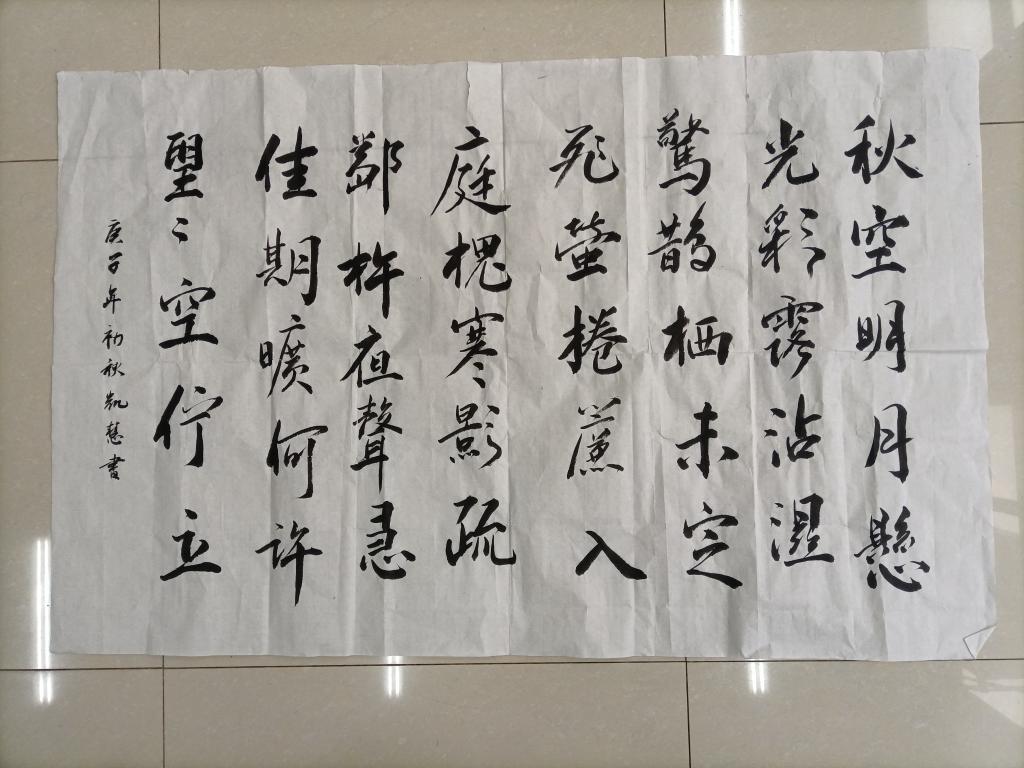 秋空明月懸
光彩露沾濕
驚鵲栖未定
飛螢捲簾入
庭槐寒影疏
鄰杵夜聲急
佳期曠何許
望〻空佇立
庚子年初秋凱慧書